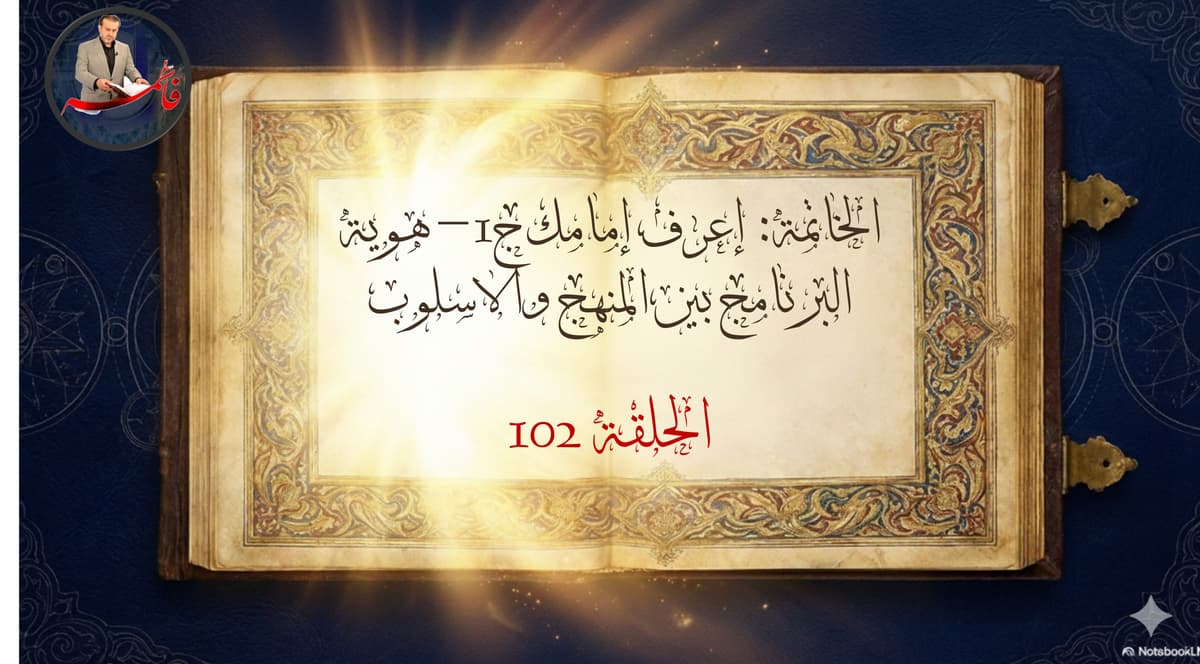 فاطمة
الخاتمة: إعرف إمامك ج1 – هوية
البرنامج بين المنهج والاسلوب
الحلقة 102
NotebookL